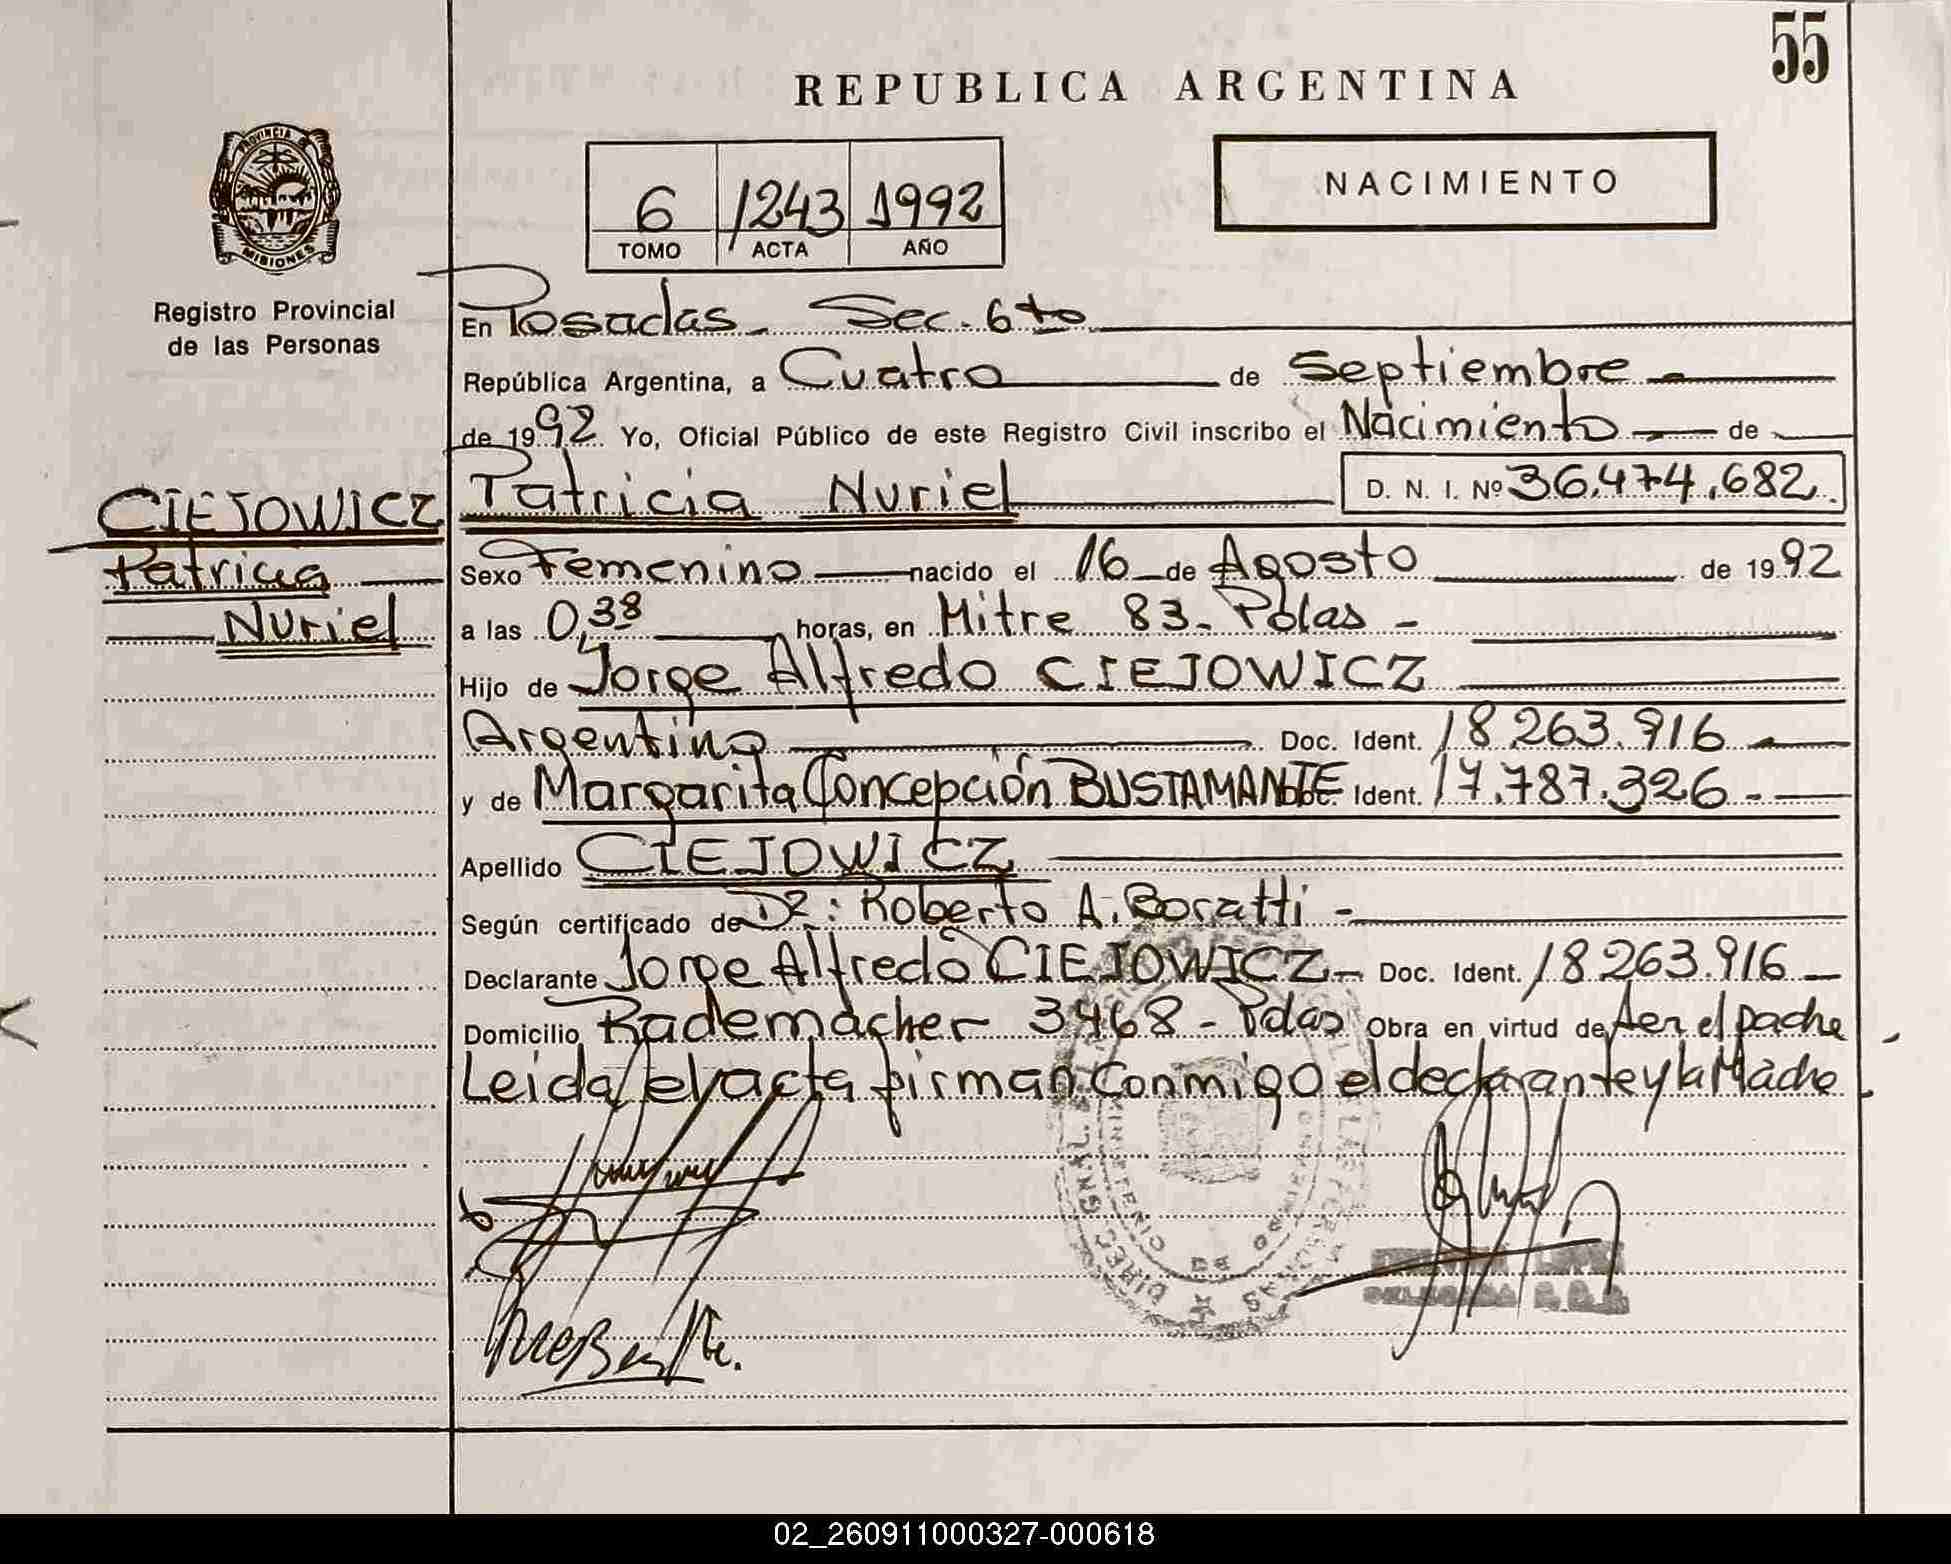 55
REPUBLICA ARGENTINA
PROVINCIA DE
MISIONES
Registro Provincial
de las Personas
NACIMIENTO
6 1243 1992
TOMO ACTA AÑO
En Posadas - Sec. 6to
República Argentina, a Cuatro de Septiembre
de 1992 Yo, Oficial Público de este Registro Civil inscribo el Nacimiento de
CIEJOWICZ
Patricia
Nuriel
Patricia Nuriel D. N. I. Nº 36.474.682.
Sexo Femenino nacido el 16 de Agosto de 1992
a las 0,38 horas, en Mitre 83 - Pdas -
Hijo de Jorge Alfredo CIEJOWICZ
Argentino Doc. Ident. 18263.916
y de Margarita Concepción BUSTAMANTE Doc. Ident. 17.787.326 -
Apellido CIEJOWICZ
Según certificado de Dr: Roberto A. Boratti -
Declarante Jorge Alfredo CIEJOWICZ - Doc. Ident. 18263.916
Domicilio Rademacher 3468 - Pdas Obra en virtud de ser el padre
Leida el acta firman conmigo el declarante y la Madre
02_260911000327-000618